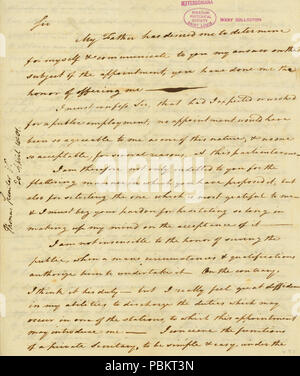 JEFFERSONIANA
MISSOURI
HISTORICAL
SOCIETY
BIXBY COLLECTION
Sir
My Father has desired me to determine
for myself & communicate to you my answer on the
subject of the appointment, you have done me the
honor of offering me
I must confess Sir, that had I expected or wished
for a public employment, no appointment would have
been so agreeable to me as one of this nature, & none
so acceptable, for several reasons, as this particular one
I am therefore not only indebted to you for the
flattering manner in which you have proposed it, but
also for selecting the one which is most grateful to me
& I must beg your pardon for hesitating so long in
making up my mind on the acceptance of it
I am not insensible to the honor of serving the
public when a mans circumstances & qualifications
authorize him to undertake it On the contrary
I think it his duty but I really feel great diffidence
in my abilities to discharge the duties which may
occur in one of the stations, to which this appointment
may introduce me I conceive the functions
of a private Secretary to be simple & easy under the
alamy
Image ID: PBKT3N
www.alamy.com